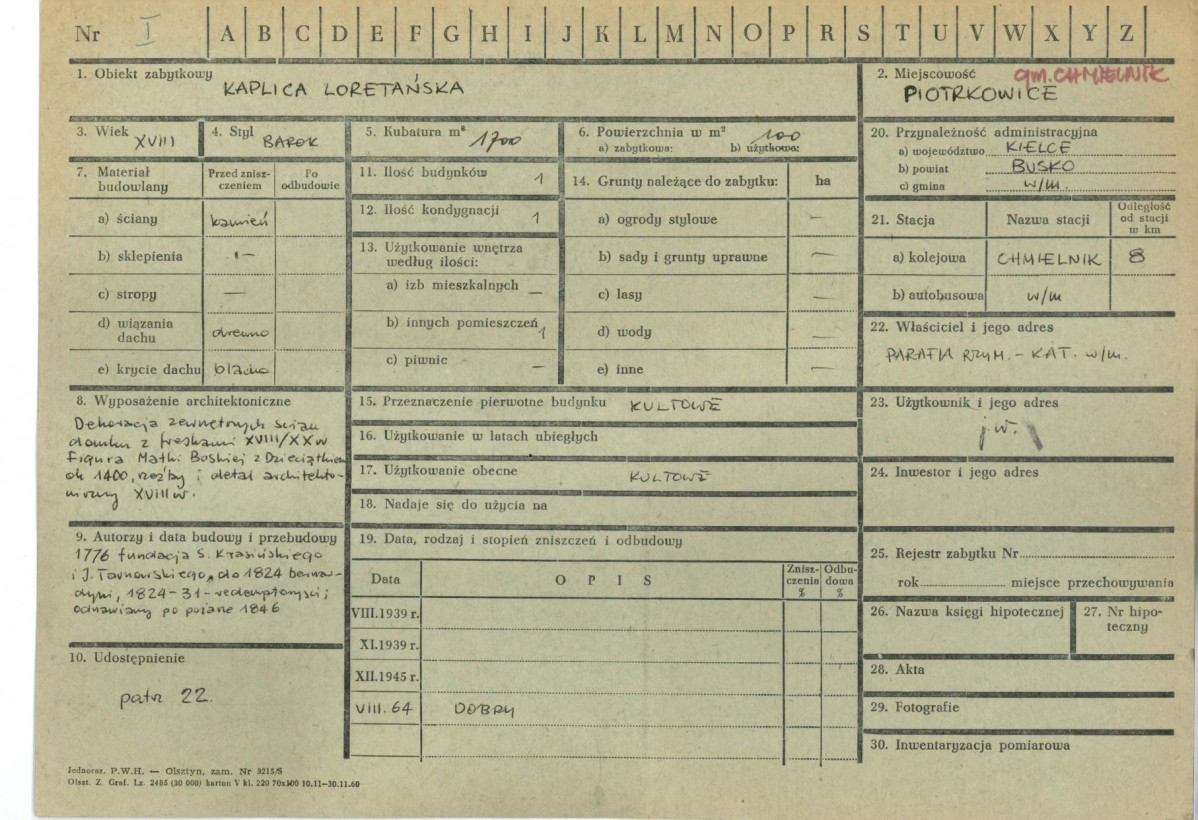 Nr I A B C D E F G H I J K L M N O P R S T U V W X Y Z
1. Obiekt zabytkowy
KAPLICA LORETAŃSKA
2. Miejscowość
gm. CHMIELNIK
PIOTRKOWICE
3. Wiek XVIII
4. Styl BAROK
5. Kubatura m³ 1700
6. Powierzchnia w m² 100
a) zabytkowa: b) użytkowa:
20. Przynależność administracyjna
a) województwo KIELCE
b) powiat BUSKO
c) gmina w/m.
7. Materiał budowlany
Przed zniszczeniem
Po odbudowie
a) ściany kamień
b) sklepienia -"-
c) stropy —
d) wiązania dachu drewno
e) krycie dachu blacha
11. Ilość budynków 1
12. Ilość kondygnacji 1
13. Użytkowanie wnętrza
według ilości:
a) izb mieszkalnych —
b) innych pomieszczeń 1
c) piwnic —
14. Grunty należące do zabytku: ha
a) ogrody stylowe —
b) sady i grunty uprawne —
c) lasy —
d) wody —
e) inne —
21. Stacja
Nazwa stacji
Odległość
od stacji
w km
a) kolejowa CHMIELNIK 8
b) autobusowa w/m
22. Właściciel i jego adres
PARAFIA RZYM. - KAT. w/m.
8. Wyposażenie architektoniczne
Dekoracja zewnętrznych ścian
domku z freskami XVIII/XX w
Figura Matki Boskiej z Dzieciątkiem
ok 1400, rzeźby i detal architekto-
niczny XVIII w.
15. Przeznaczenie pierwotne budynku KULTOWE
16. Użytkowanie w latach ubiegłych
17. Użytkowanie obecne KULTOWE
18. Nadaje się do użycia na
23. Użytkownik i jego adres
j.w.
24. Inwestor i jego adres
9. Autorzy i data budowy i przebudowy
1776 fundacja S. Krasińskiego
i J. Tarnowskiego, do 1824 bernar-
dyni, 1824-31 - redemptoryści;
odnawiany po pożarze 1846
19. Data, rodzaj i stopień zniszczeń i odbudowy
Data
OPIS
Znisz-
czenia
%
Odbu-
dowa
%
VIII.1939 r.
XI.1939 r.
XII.1945 r.
VIII. 64 DOBRY
25. Rejestr zabytku Nr
rok miejsce przechowywania
26. Nazwa księgi hipotecznej
27. Nr hipo-
teczny
10. Udostępnienie
patrz 22.
28. Akta
29. Fotografie
30. Inwentaryzacja pomiarowa
Jednoraz. P.W.H. — Olsztyn, zam. Nr 3215/S
Olszt. Z. Graf. Lz. 2485 (30 000) karton V kl. 220 70x100 10.11—30.11.60